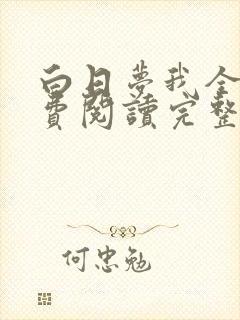 白日夢我全
費閱讀完整
何忠勉